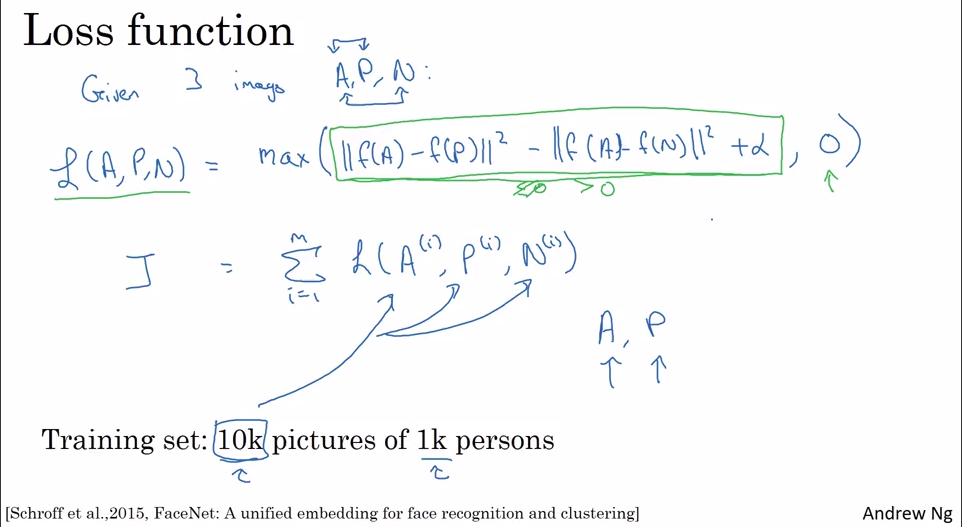 Loss function
Given 3 images A, P, N:
L(A, P, N) = max(||f(A) - f(P)||² - ||f(A) - f(N)||² + α, 0)
≤0 >0
J = Σ_{i=1}^{m} L(A^{(i)}, P^{(i)}, N^{(i)})
A, P
Training set: 10k pictures of 1k persons
[Schroff et al.,2015, FaceNet: A unified embedding for face recognition and clustering] Andrew Ng